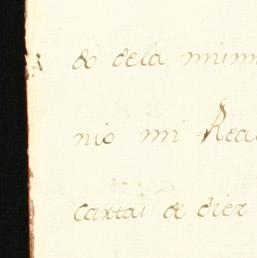 do dela mism
nio mi Rea
cartas de diez